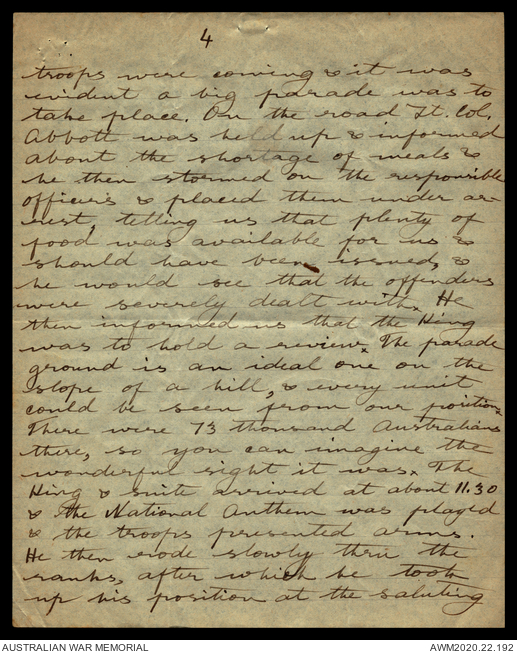 4
troops were coming & it was
evident a big parade was to
take place. On the road Lt. Col.
Abbott was held up & informed
about the shortage of meals &
he then stormed on the responsible
officers & placed them under ar-
rest, telling us that plenty of
food was available for us &
should have been issued, &
he would see that the offenders
were severely dealt with. He
then informed us that the King
was to hold a review. The parade
ground is an ideal one on the
slope of a hill, & every unit
could be seen from our position.
There were 73 thousand Australians
there, so you can imagine the
wonderful sight it was. The
King & suite arrived at about 11.30
& the National Anthem was played
& the troops presented arms.
He then rode slowly thru the
ranks, after which he took
up his position at the saluting
AUSTRALIAN WAR MEMORIAL
AWM2020.22.192